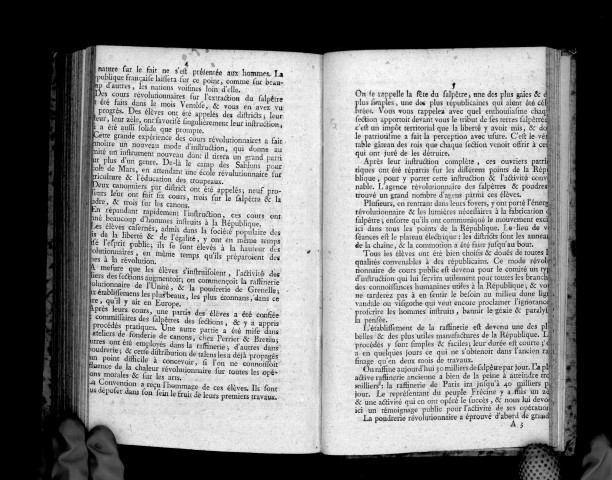 4
nature sur le fait ne s'est présentée aux hommes. La
publique française laissera sur ce point, comme sur beau-
p d'autres, les nations voisines loin d'elle.
Des cours révolutionnaires sur l'extraction du salpêtre
été faits dans le mois Ventôse, & vous en avez vu
progrès. Des élèves ont été appelés des districts, leur
leur, leur zèle, ont favorisé singulièrement leur instruction,
a été aussi solide que prompte.
Cette grande expérience des cours révolutionnaires a fait
noître un nouveau mode d'instruction, qui donne au
mité un instrument nouveau dont il tirera un grand parti
ur plus d'un genre. De-là le camp des Sablons pour
cole de Mars, en attendant une école révolutionnaire sur
griculture & l'éducation des troupeaux.
Deux canonniers par district ont été appelés; neuf pro-
seurs leur ont fait six cours, trois sur le salpêtre & la
udre, & trois sur les canons.
En répandant rapidement l'instruction, ces cours ont
né beaucoup d'hommes instruits à la République.
Les élèves casernés, admis dans la société populaire des
is de la liberté & de l'égalité, y ont en même temps
sé l'esprit public; ils se sont élevés à la hauteur des
olutionnaires, en même temps qu'ils préparoient des
es à la révolution.
A mesure que les élèves s'instruisoient, l'activité des
liers des sections augmentoit; on commençoit la raffinerie
olutionnaire de l'Unité, & la poudrerie de Grenelle,
x établissemens les plus beaux, les plus étonnans, dans ce
re, qu'il y ait en Europe.
Après leurs cours, une partie des élèves a été confiée
commissaires des salpêtres des sections, & y a appris
procédés pratiques. Une autre partie a été mise dans
ateliers de fonderie de canons, chez Perrier & Brezin;
utres ont été employés dans la raffinerie, d'autres dans
oudrerie; & cette distribution de talens les a déjà propagés
un point difficile à concevoir, si l'on ne connoissoit
fluence de la chaleur révolutionnaire sur toutes les opé-
ons morales & sur les arts.
La Convention a reçu l'hommage de ces élèves. Ils sont
us déposer dans son sein le fruit de leurs premiers travaux.
5
On se rappelle la fête du salpêtre, une des plus gaies & d
plus simples, une des plus républicaines qui aient été célé
brées. Vous vous rappelez avec quel enthousiasme chaq
section apportoit devant vous le tribut de ses terres salpêtrées
c'est un impôt territorial que la liberté y avoit mis, & do
le patriotisme a fait la perception avec usure. C'est le véri
table gâteau des rois que chaque section venoit offrir à ceu
qui ont juré de les détruire.
Après leur instruction complète, ces ouvriers patrio
tiques ont été répartis sur les différens points de la Répu
blique, pour y porter cette instruction & l'activité conve
nable. L'agence révolutionnaire des salpêtres & poudres
trouvé un grand nombre d'agens parmi ces élèves.
Plusieurs, en rentrant dans leurs foyers, y ont porté l'énerg
révolutionnaire & les lumières nécessaires à la fabrication d
salpêtre; ensorte qu'ils ont communiqué le mouvement excit
ici dans tous les points de la République. Le lieu de vo
séances est le plateau électrique: les districts sont les anneau
de la chaîne, & la commotion a été faire jusqu'au bout.
Tous les élèves ont été bien choisis & doués de toutes l
qualités convenables à des républicains. Ce mode révolu
tionnaire de cours public est devenu pour le comité un typ
d'instruction qui lui servira utilement pour toutes les branche
des connoissances humaines utiles à la République, & vou
ne tarderez pas à en sentir le besoin au milieu d'une ligue
vandale ou visigothe qui veut encore proclamer l'ignorance
proscrire les hommes instruits, bannir le génie & paralyse
la pensée.
L'établissement de la raffinerie est devenu une des plus
belles & des plus utiles manufactures de la République. L
procédés y sont simples & faciles; leur durée est courte; o
a en quelques jours ce qui ne s'obtenoit dans l'ancien ra
finage qu'en deux mois de travaux.
On raffine aujourd'hui 30 milliers de salpêtre par jour. La pl
active raffinerie ancienne a bien de la peine à atteindre tro
milliers: la raffinerie de Paris ira jusqu'à 40 milliers pa
jour. Le représentant du peuple Frécine y a mis un zè
& une activité qui en ont opéré le succès, & nous lui devo
ici un témoignage public pour l'activité de ses opération
La poudrerie révolutionnaire a éprouvé d'abord de grand
A 3